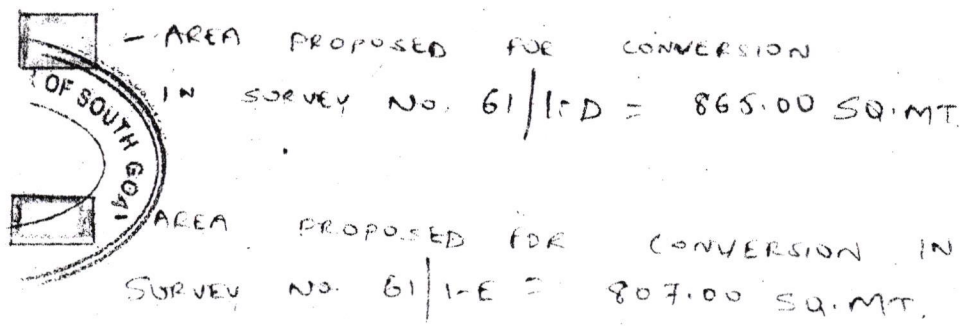 - AREA PROPOSED FOR CONVERSION
IN SURVEY NO. 61/1-D = 865.00 SQ.MT.
OF SOUTH GOA
AREA PROPOSED FOR CONVERSION IN
SURVEY NO. 61/1-E = 807.00 SQ.MT.